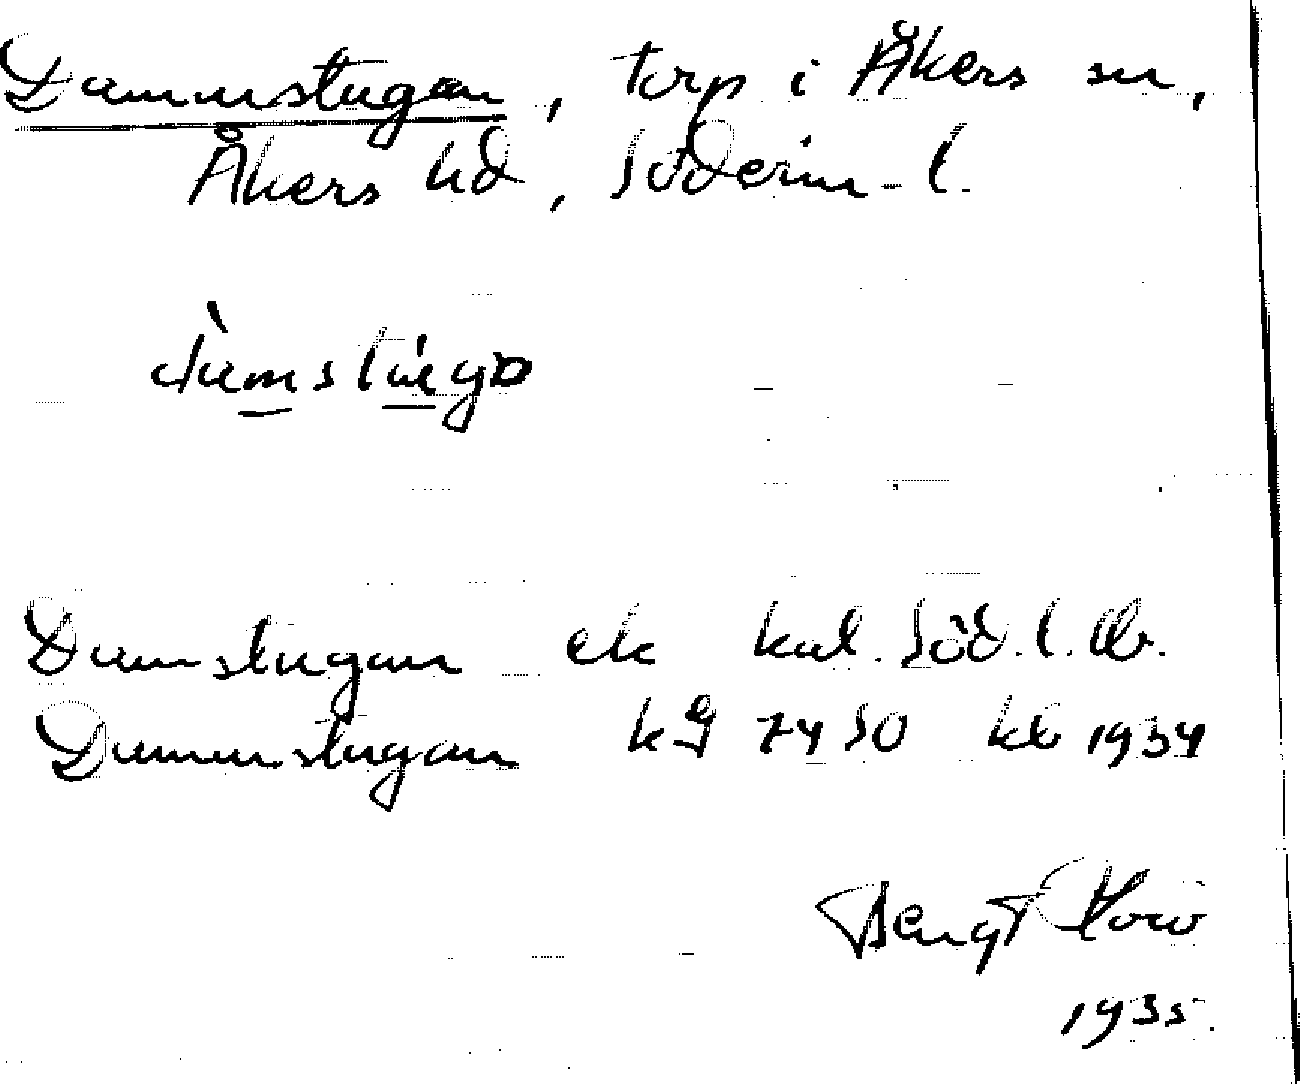 Dammstugan, torp i Åkers sn,
Åkers hd, Söderm. l.
Damstugan ek kal. Söd. l. lb.
Dammstugan kb 1934
Bengt
1935.